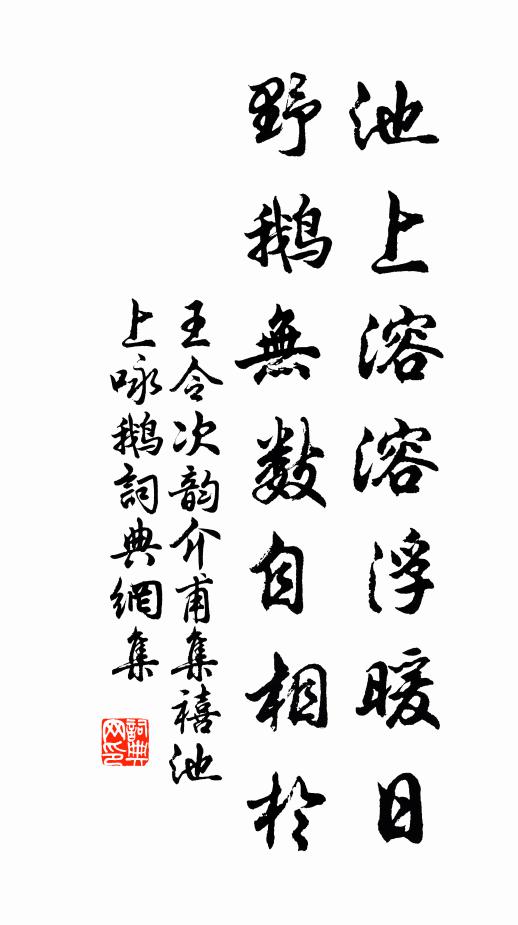 池上溶溶浮暖日
野鹅無数自相於
王令次韵介甫集禧池
上咏鹅詞典網集
詞典
网印